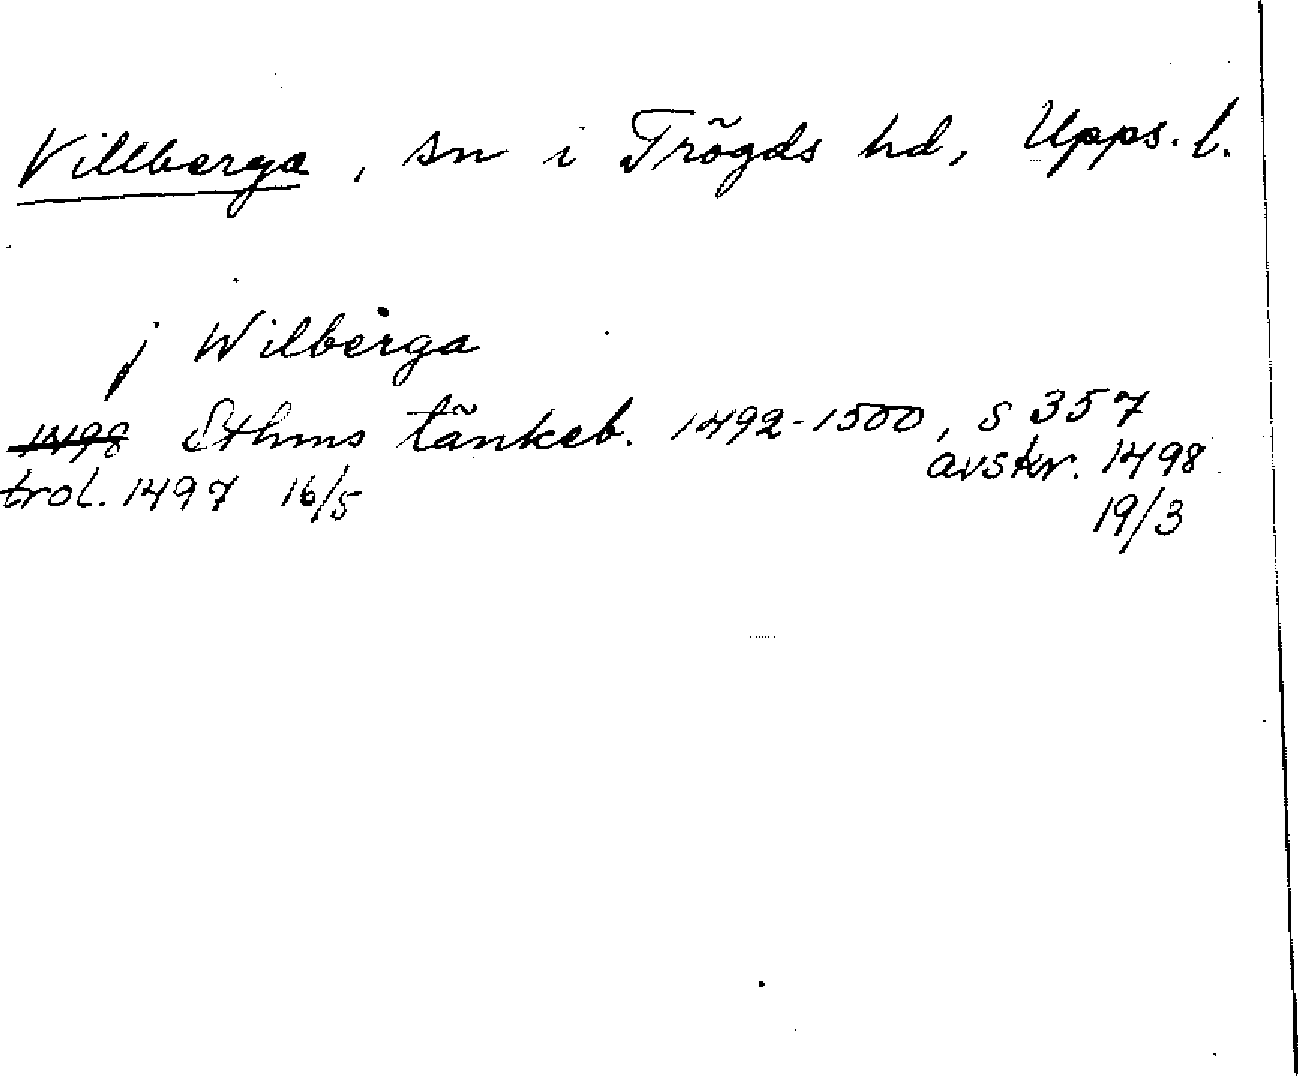 Villberga, sn i Trögds hd, Upps. l.
j Wilberga
1498 Sthms tänkeb. 1492-1500, s 357
trol. 1497 16/5 avskr. 1498
19/3